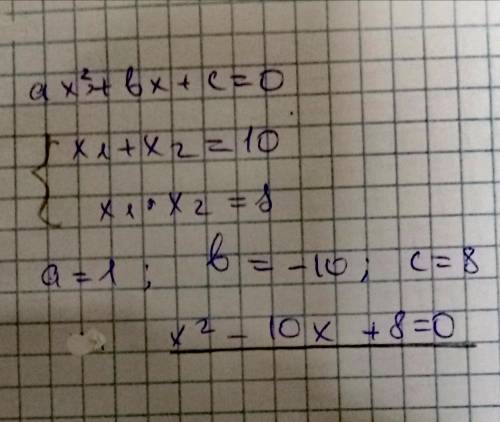 ax²+bx+c=0
x₁+x₂=10
x₁·x₂=8
a=1; b=-10; c=8
x²-10x+8=0